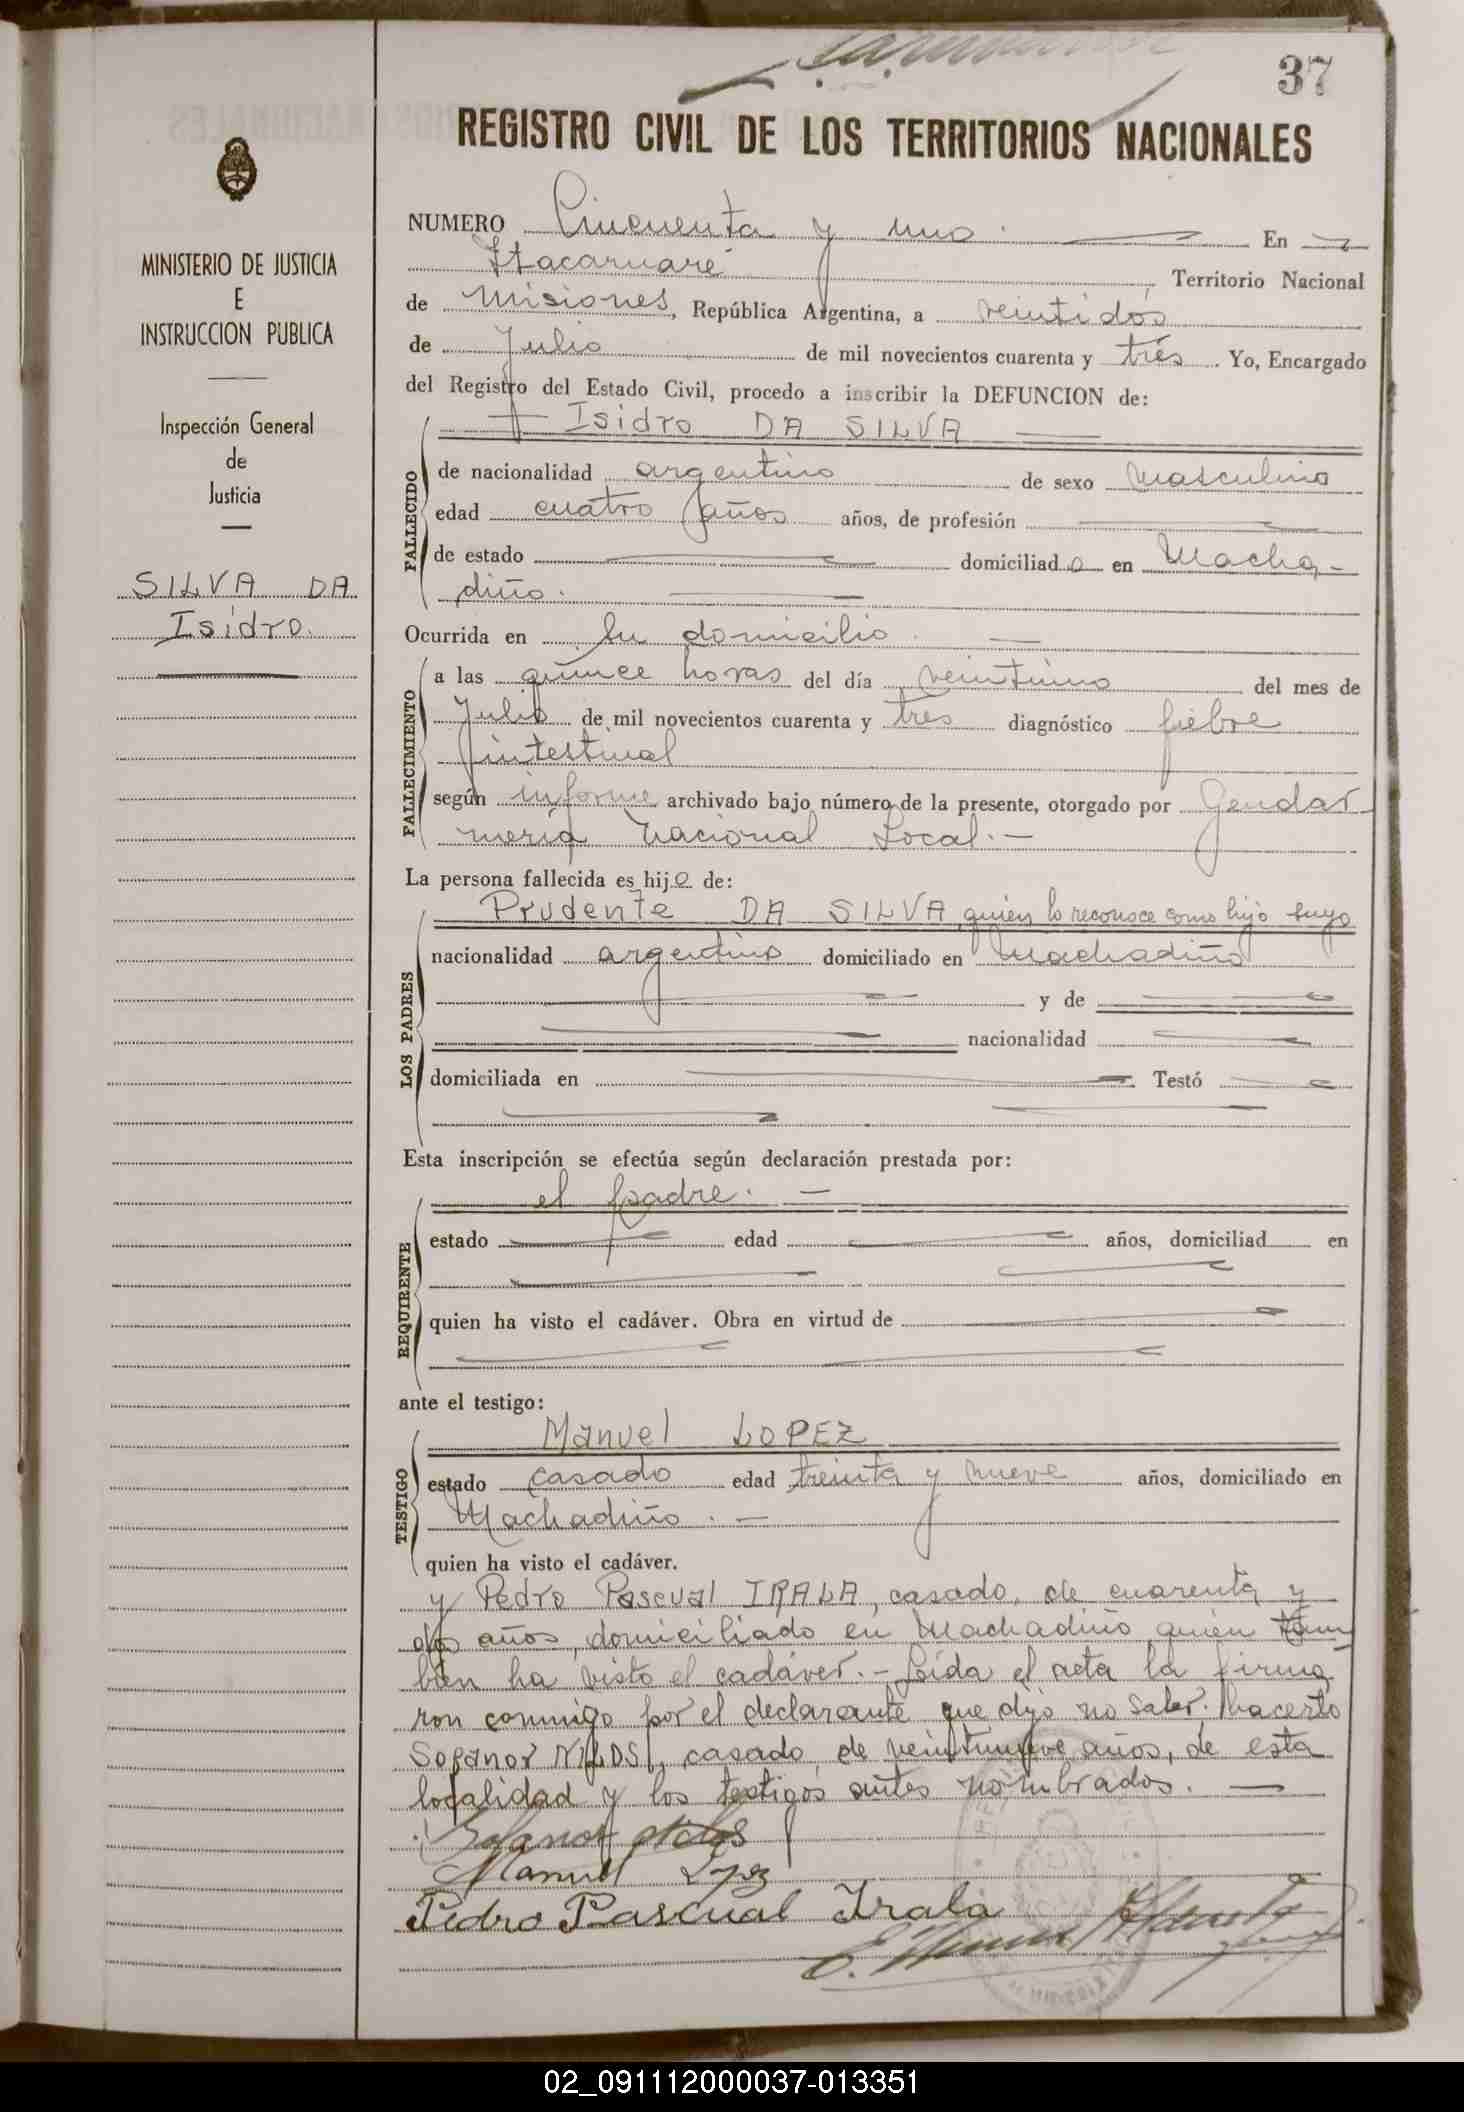 37
REGISTRO CIVIL DE LOS TERRITORIOS NACIONALES
MINISTERIO DE JUSTICIA
E
INSTRUCCION PUBLICA
Inspección General
de
Justicia
SILVA DA
Isidro.
NUMERO Cincuenta y uno. En
Itacaruaré Territorio Nacional
de Misiones, República Argentina, a veintidós
de Julio de mil novecientos cuarenta y trés. Yo, Encargado
del Registro del Estado Civil, procedo a inscribir la DEFUNCION de:
Isidro DA SILVA
FALLECIDO
de nacionalidad argentino de sexo masculino
edad cuatro años años, de profesión
de estado domiciliado en Macha-
diño.
Ocurrida en su domicilio.
FALLECIMIENTO
a las quince horas del día veintiuno del mes de
Julio de mil novecientos cuarenta y tres diagnóstico fiebre
intestinal
según informe archivado bajo número de la presente, otorgado por Gendar-
mería Nacional Local.-
La persona fallecida es hijo de:
LOS PADRES
Prudente DA SILVA, quien lo reconoce como hijo suyo
nacionalidad argentino domiciliado en Machadiño
y de
nacionalidad
domiciliada en Testó
Esta inscripción se efectúa según declaración prestada por:
REQUIRENTE
el padre.-
estado edad años, domiciliad en
quien ha visto el cadáver. Obra en virtud de
ante el testigo:
TESTIGO
Manuel LOPEZ
estado casado edad treinta y nueve años, domiciliado en
Machadiño.-
quien ha visto el cadáver.
y Pedro Pascual IRALA, casado, de cuarenta y
dos años, domiciliado en Machadiño quien tam-
bién ha visto el cadáver.- Leída el acta la firma
ron conmigo por el declarante que dijo no saber hacerlo
casado, de veintinueve años, de esta
localidad y los testigos antes nombrados.
Manuel Lopez
Pedro Pascual Irala
02_091112000037-013351